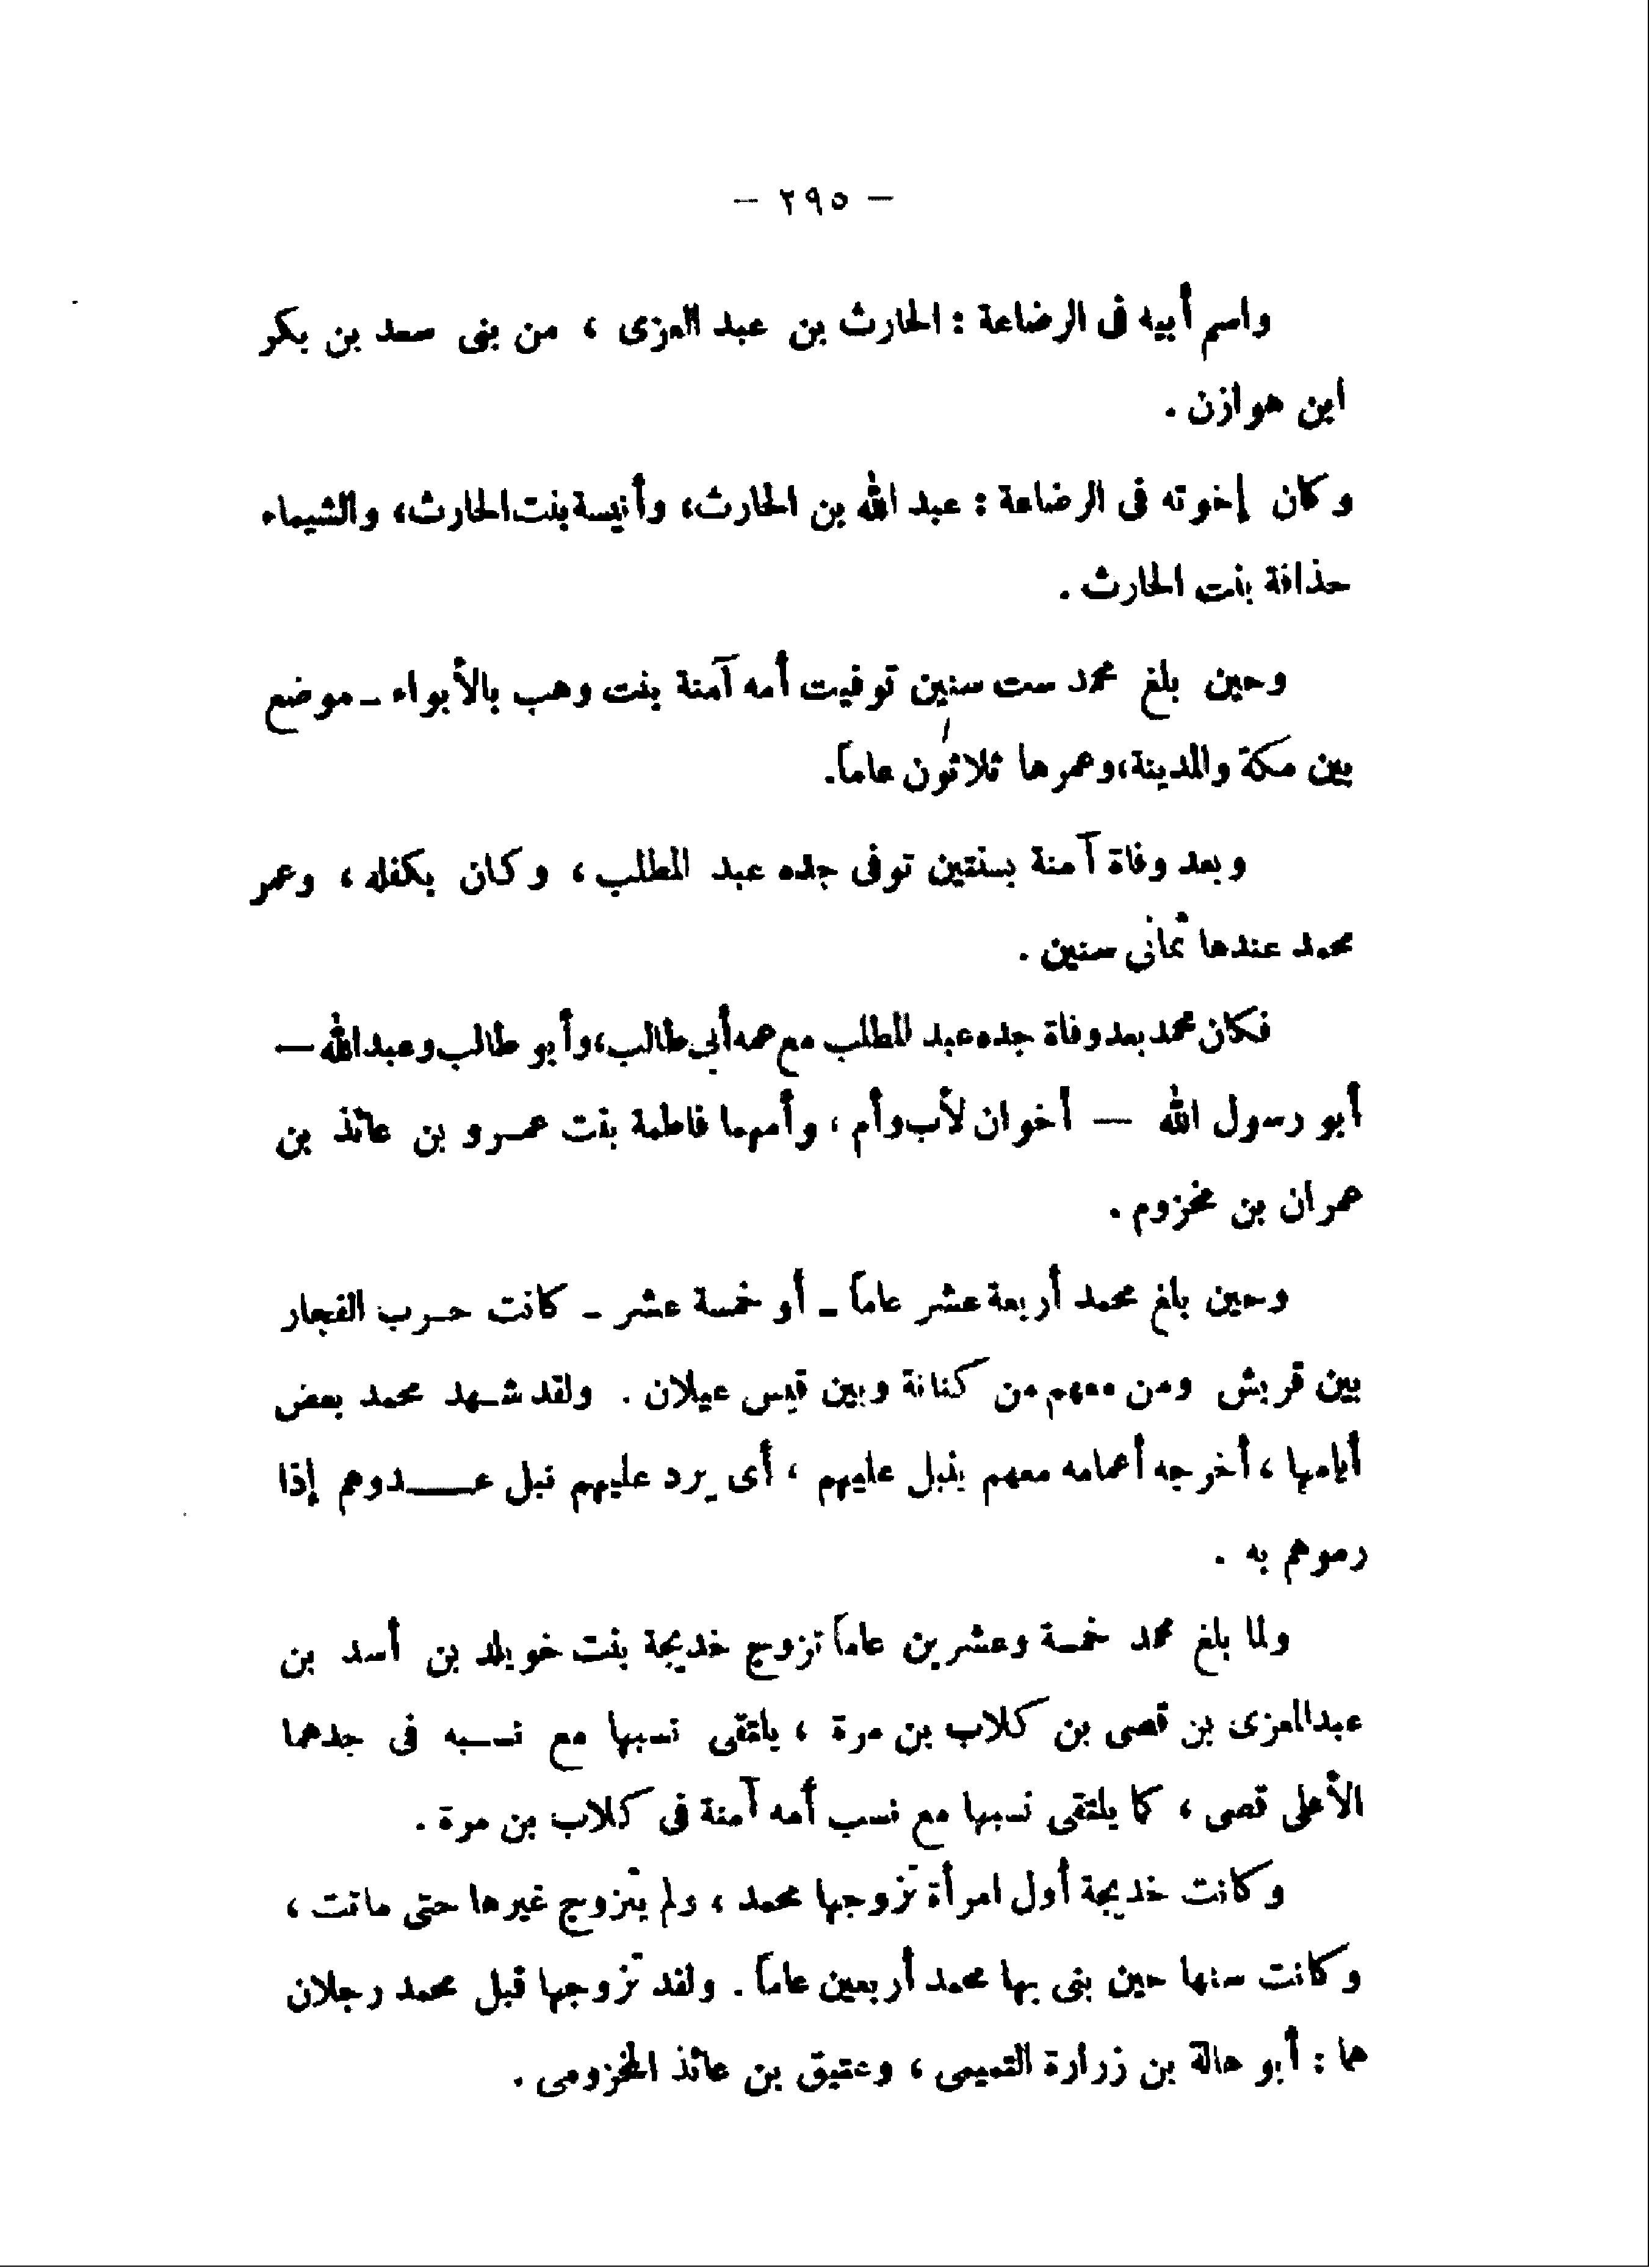 — ٢٩٥ —
واسم أبيه فى الرضاعة : الحارث بن عبد العزى ، من بنى سعد بن بكر
ابن هوازن .
وكان إخوته فى الرضاعة : عبد الله بن الحارث، وأنيسة بنت الحارث، والشيماء
حذافة بنت الحارث .
وحين بلغ محمد ست سنين توفيت أمه آمنة بنت وهب بالأبواء ـ موضع
بين مكة والمدينة، وعمرها ثلاثون عاماً.
وبعد وفاة آمنة بسنتين توفى جده عبد المطلب ، وكان يكفله ، وعمر
محمد عندها ثمانى سنين .
فكان محمد بعد وفاة جده عبد المطلب مع عمه أبى طالب، وأبو طالب وعبد الله —
أبو رسول الله — أخوان لأب وأم ، وأمهما فاطمة بنت عمرو بن عائذ بن
عمران بن مخزوم .
وحين بلغ محمد أربعة عشر عاماً ـ أو خمسة عشر ـ كانت حرب الفجار
بين قريش ومن معهم من كنانة وبين قيس عيلان . ولقد شهد محمد بعض
أيامها ، أخرجه أعمامه معهم ينبل عليهم ، أى يرد عليهم نبل عدوهم إذا
رموهم به .
ولما بلغ محمد خمسة وعشرين عاماً تزوج خديجة بنت خويلد بن أسد بن
عبد العزى بن قصى بن كلاب بن مرة ، يلتقى نسبها مع نسبه فى جدهما
الأعلى قصى ، كما يلتقى نسبها مع نسب أمه آمنة فى كلاب بن مرة .
وكانت خديجة أول امرأة تزوجها محمد ، ولم يتزوج غيرها حتى ماتت ،
وكانت سنها حين بنى بها محمد أربعين عاماً . ولقد تزوجها قبل محمد رجلان
هما : أبو هالة بن زرارة التميمى ، وعتيق بن عائذ المخزومى .